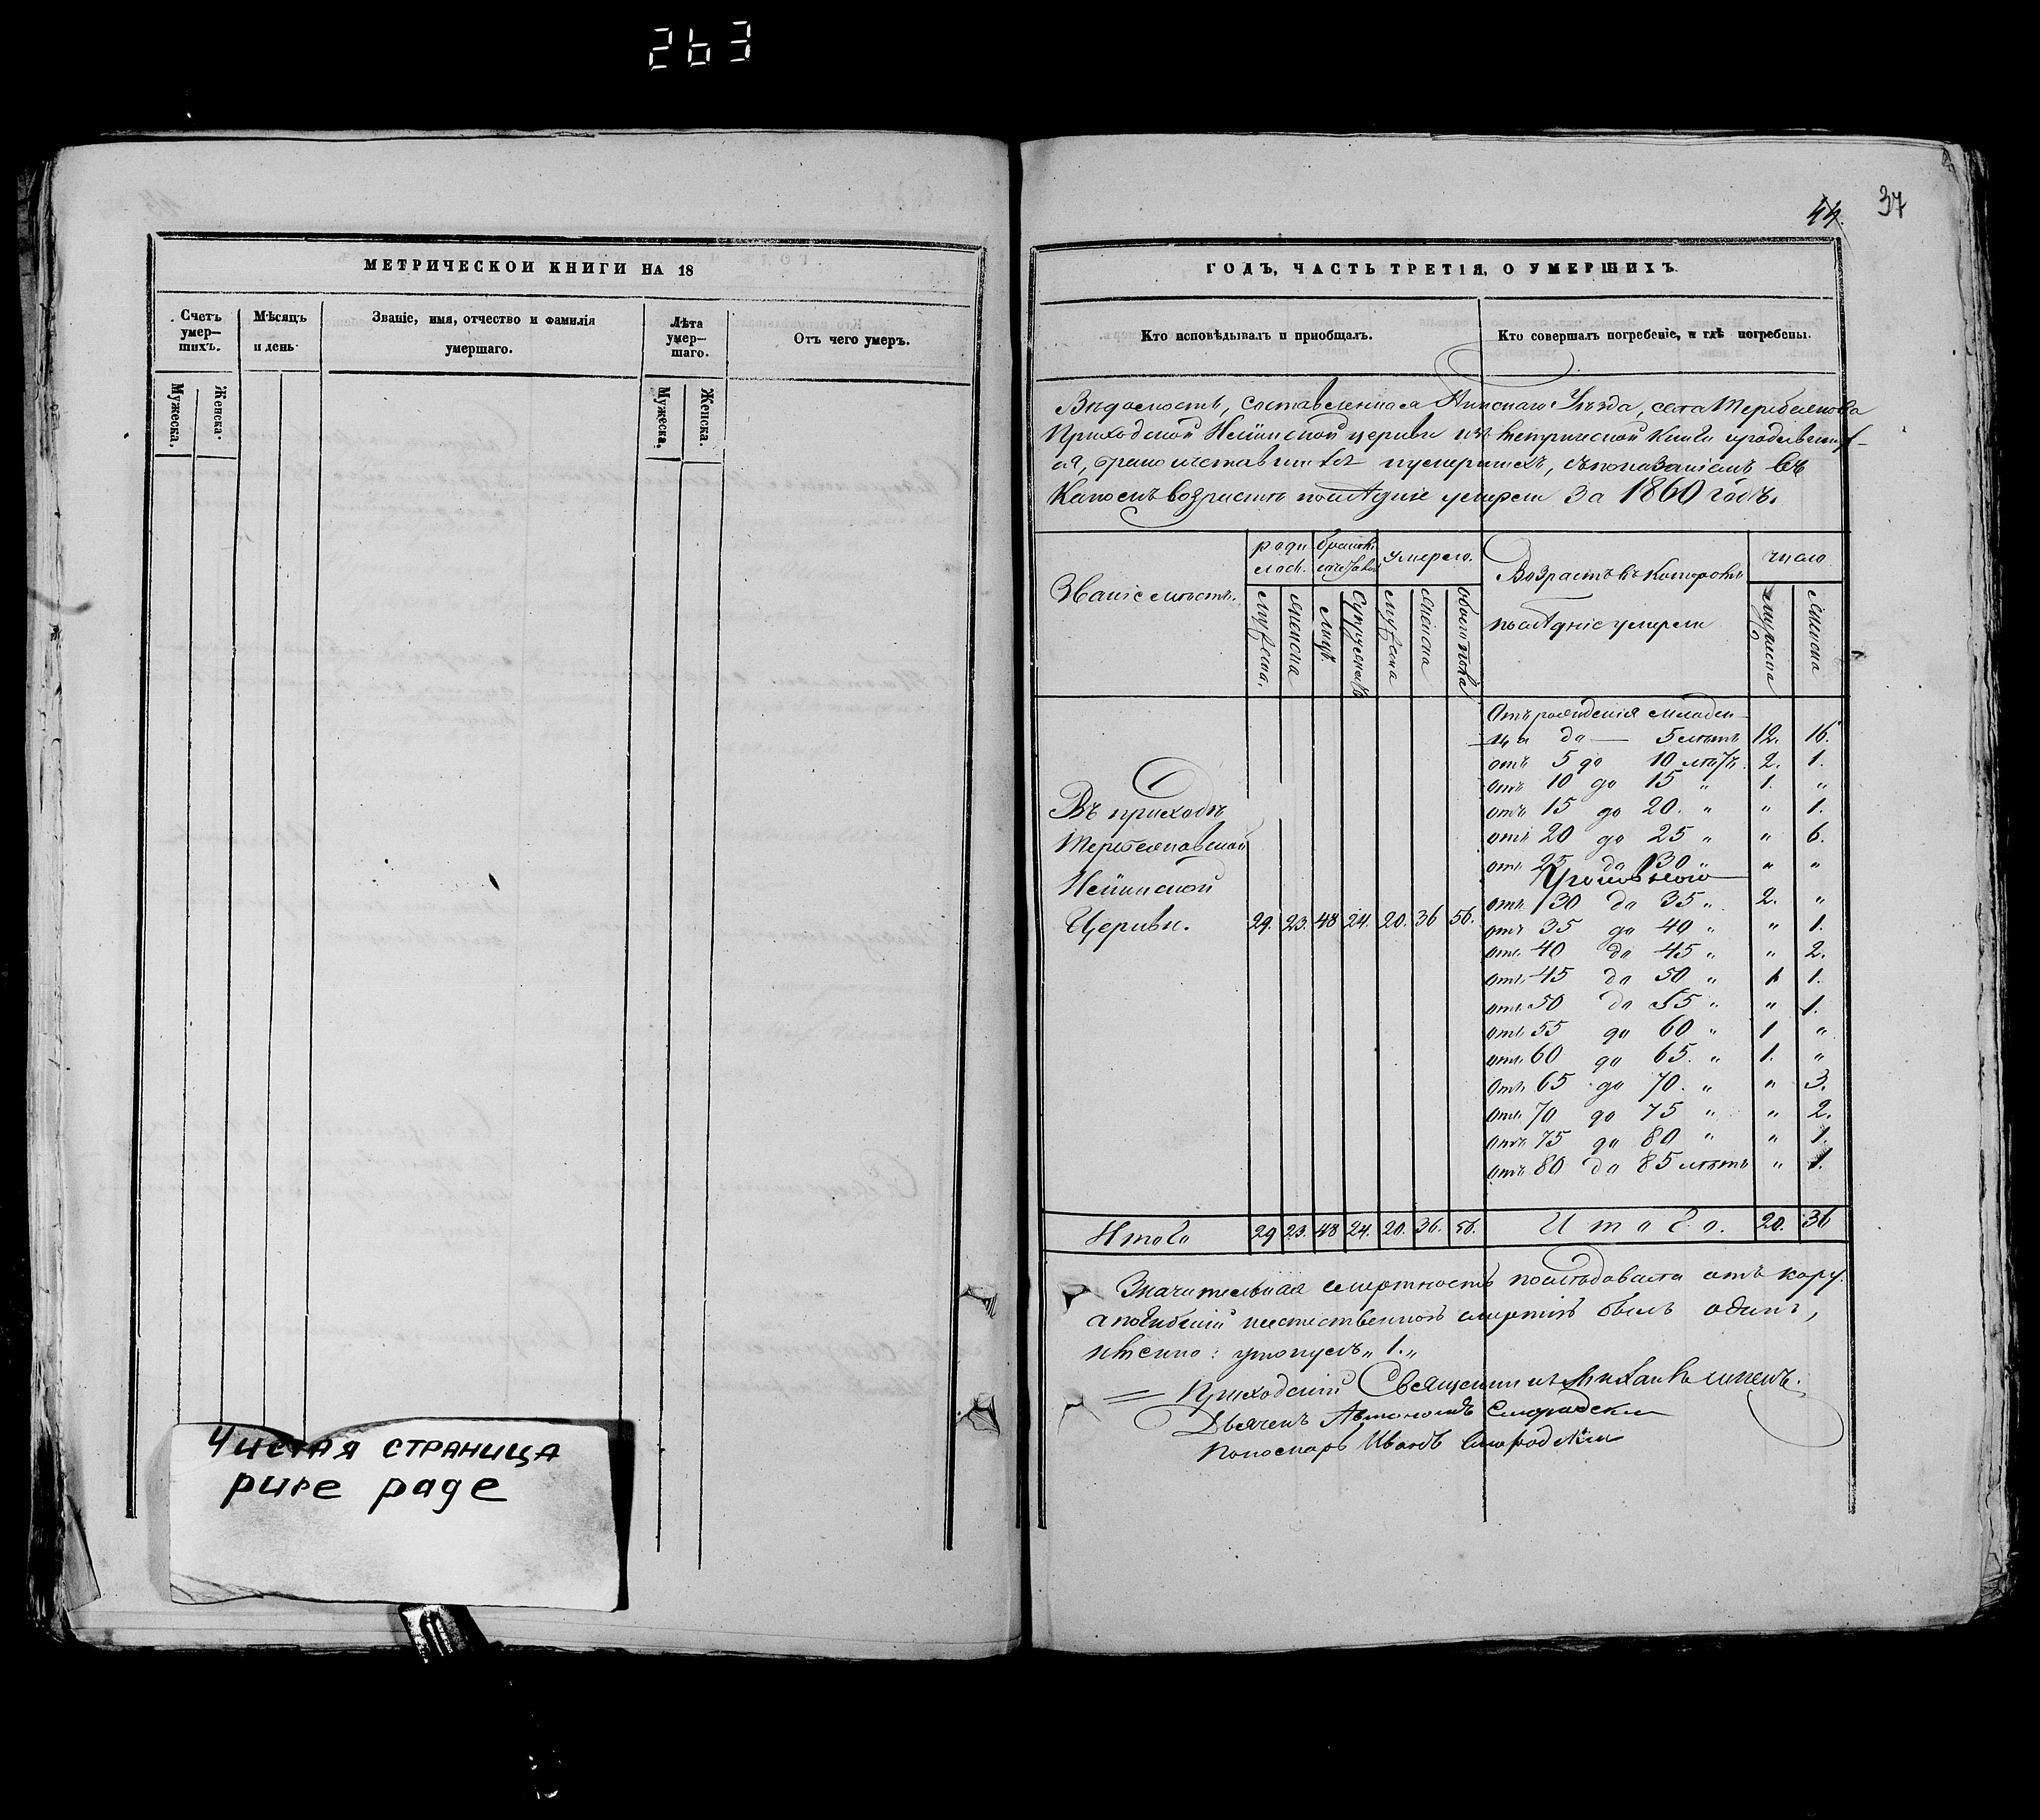 263
МЕТРИЧЕСКОЙ КНИГИ НА 18
Счетъ умер-
шихъ.
Мѣсяцъ
и день
Званіе, имя, отчество и фамилія
умершаго.
Лѣта
умер-
шаго.
Отъ чего умеръ.
Мужеска.
Женска.
Мужеска.
Женска.
Чистая страница
pure page
37
44.
ГОДЪ, ЧАСТЬ ТРЕТІЯ, О УМЕРШИХЪ.
Кто исповѣдывалъ и пріобщалъ.
Кто совершалъ погребеніе, и гдѣ погребены.
Вѣдомость, составленная Уѣзда, села
Приходской церкви изъ метрической книги
съ показаніемъ въ
какомъ возрастѣ послѣдніе умерли За 1860 годъ.
Званіе мѣстъ.
роди
лось.
Умерло.
Возрастъ въ которомъ
послѣдніе умерли
число
мужеска
женска
лицъ
супружествъ
мужеска
женска
обоего пола
мужеска
женска
Отъ рожденія младен-
ца до — 5 лѣтъ 12. 16.
отъ 5 до 10 лѣтъ 2. 1.
отъ 10 до 15 „ 1. „
отъ 15 до 20. „ „ 1.
отъ 20 до 25 „ „ 6.
отъ 25 до 30 „ „ „
отъ 30 до 35 „ 2. „
отъ 35 до 40 „ „ 1.
отъ 40 до 45 „ „ 2.
отъ 45 до 50 „ 1 1.
отъ 50 до 55 „ „ 1.
отъ 55 до 60 „ 1 „
отъ 60 до 65. „ 1. „
отъ 65 до 70. „ „ 3.
отъ 70 до 75 „ „ 2.
отъ 75 до 80 „ „ 1.
отъ 80 до 85 лѣтъ „ 1.
Въ приходѣ
Церкви. 29. 23. 48 24. 20. 36 56.
Итого 29 23. 48 24. 20. 36. 56. Итого. 20. 36
Значительная смертность послѣдовала отъ кору.
а погибшій неестественною смертію былъ одинъ,
именно: утонулъ „ 1. „
Приходскій Священникъ
Дьячекъ Автономъ
Пономарь Иванъ